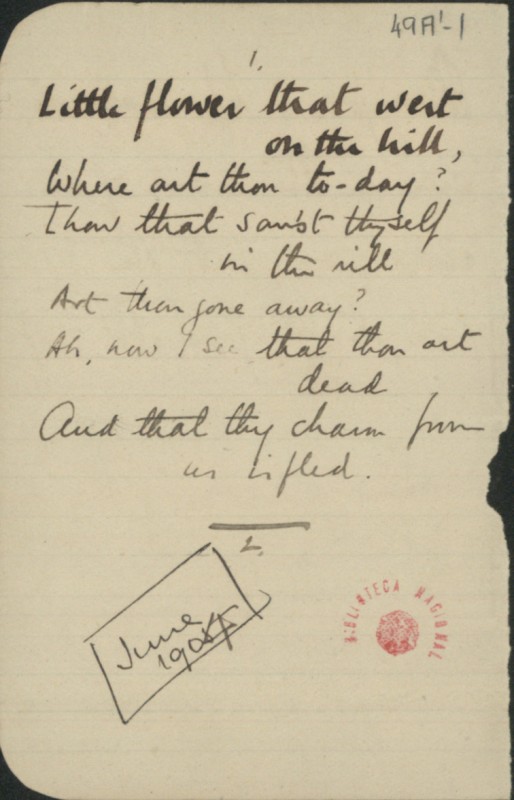 49A¹-1
1.
Little flower that wert
on the hill,
Where art thou to-day?
Thou that saw'st thyself
in the rill
Art thou gone away?
Ah, now I see that thou art
dead
And that thy charm from
us is fled.
2.
June
BIBLIOTECA NACIONAL